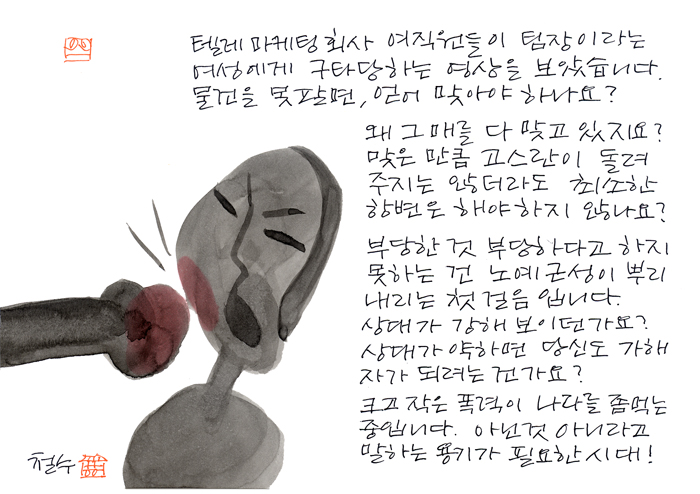 텔레마케팅 회사 여직원들이 팀장이라는
여성에게 구타당하는 영상을 보았습니다.
물건을 못팔면, 얻어 맞아야 하나요?
왜 그 매를 다 맞고 있지요?
맞은 만큼 고스란히 돌려
주지는 않더라도 최소한
항변은 해야하지 않나요?
부당한 것 부당하다고 하지
못하는 건 노예근성이 뿌리
내리는 첫걸음 입니다.
상대가 강해 보이던가요?
상대가 약하면 당신도 가해
자가 되려는 건가요?
크고 작은 폭력이 나라를 좀먹는
중입니다. 아닌것 아니라고
말하는 용기가 필요한 시대!
철수